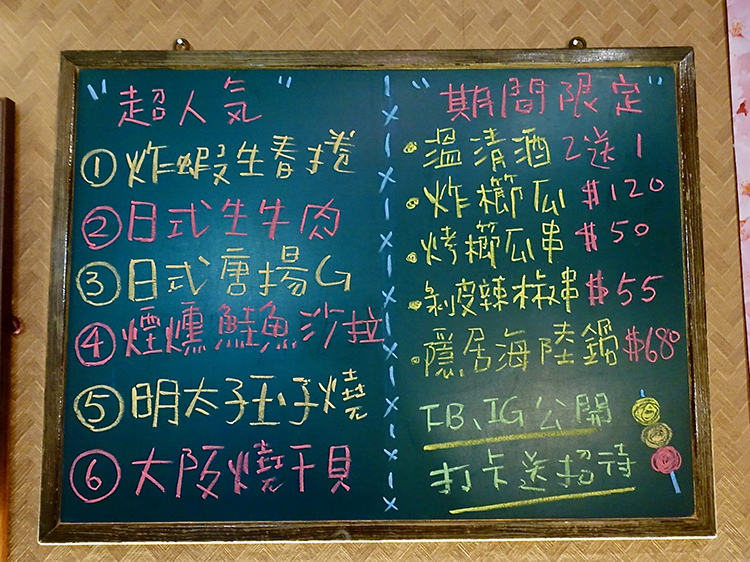 "超人気"
①炸蝦生春捲
②日式生牛肉
③日式唐揚G
④煙燻鮭魚沙拉
⑤明太子玉子燒
⑥大阪燒干貝
"期間限定"
•溫清酒 2送1
•炸櫛瓜 $120
•烤櫛瓜串 $50
•剝皮辣椒串 $55
•隱居海陸鍋 $680
FB、IG公開
打卡送招待